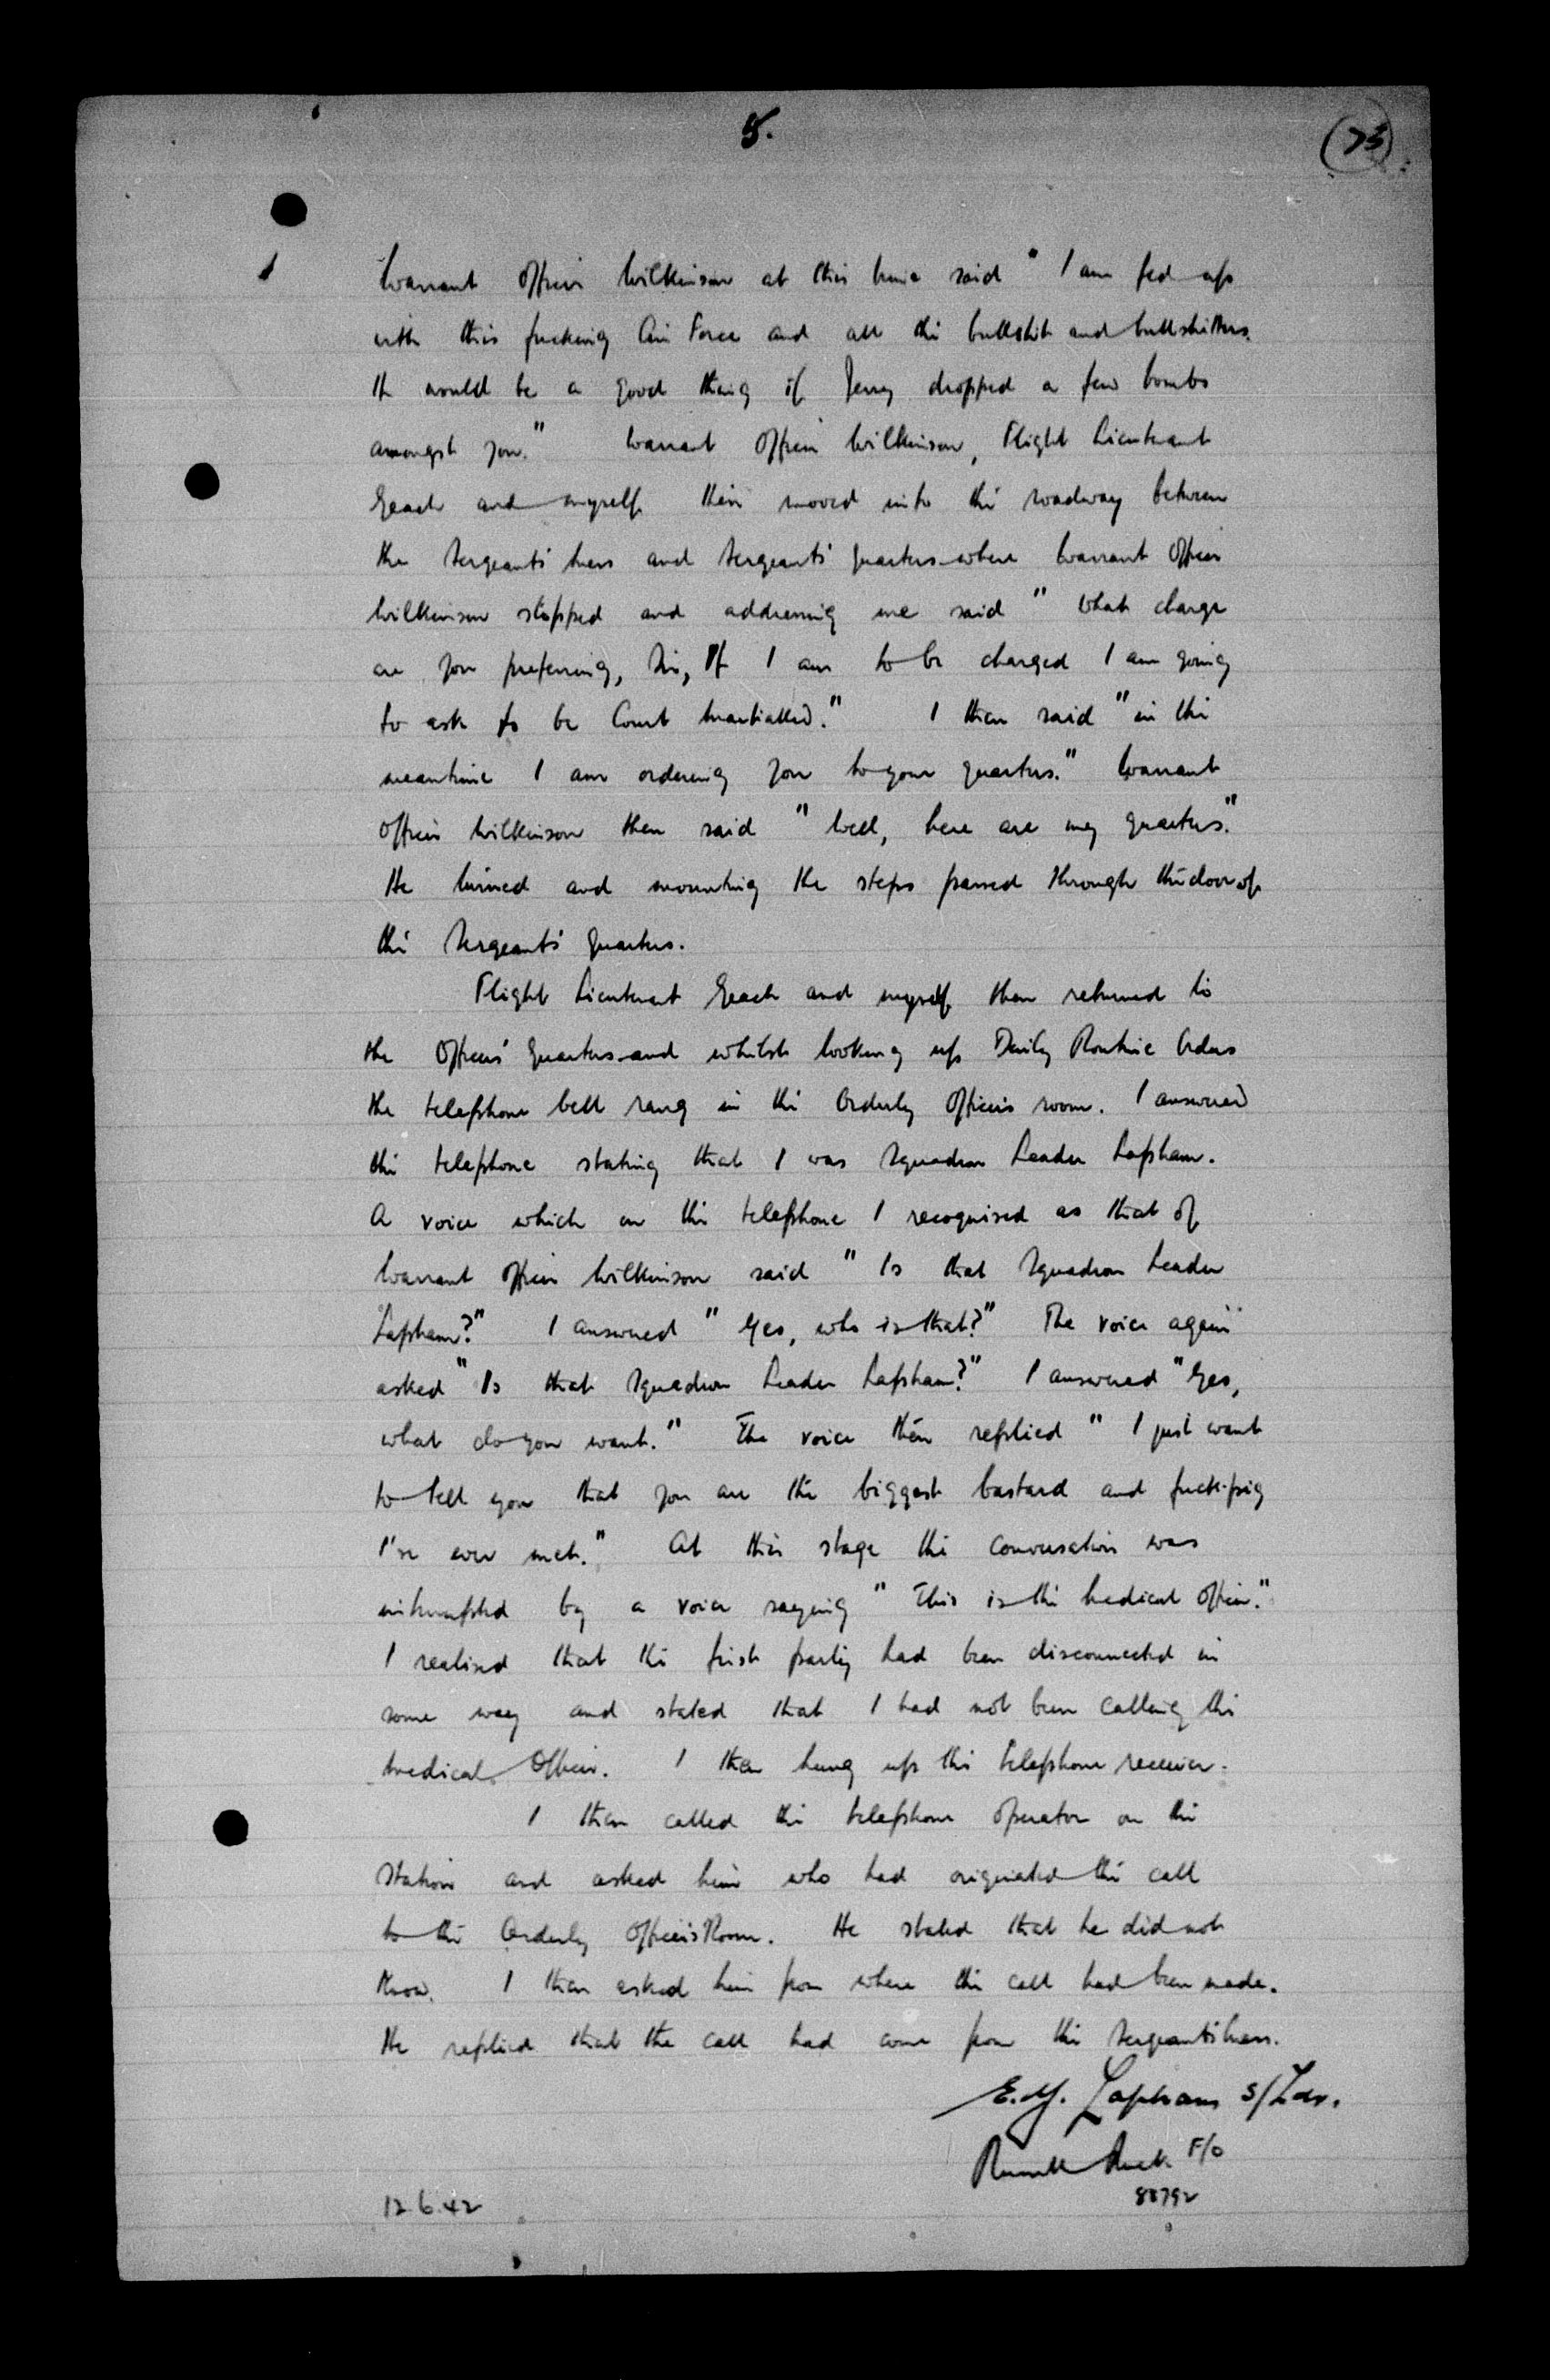 5.
(73)
Warrant Officer Wilkinson at this time said " I am fed up
with this fucking Air Force and all the bullshit and bullshitters.
It would be a good thing if Jerry dropped a few bombs
amongst you." Warrant Officer Wilkinson, Flight Lieutenant
Geach and myself then moved into the roadway between
the Sergeants' Mess and Sergeants' Quarters where Warrant Officer
Wilkinson stopped and addressing me said " What charge
are you preferring, Sir, If I am to be charged I am going
to ask to be Court Martialled." I then said "in the
meantime I am ordering you to your quarters." Warrant
Officer Wilkinson then said " Well, here are my quarters."
He turned and mounting the steps passed through the door of
the Sergeants' Quarters.
Flight Lieutenant Geach and myself then returned to
the Officers' Quarters and whilst looking up Daily Routine Orders
the telephone bell rang in the Orderly Officers room. I answered
the telephone stating that I was Squadron Leader Lapham.
A voice which on the telephone I recognised as that of
Warrant Officer Wilkinson said " Is that Squadron Leader
Lapham?" I answered " Yes, who is that?" The voice again
asked " Is that Squadron Leader Lapham?" I answered "Yes,
what do you want." The voice then replied " I just want
to tell you that you are the biggest bastard and fuck-pig
I've ever met." At this stage the conversation was
interrupted by a voice saying " This is the Medical Officer."
I realised that the first party had been disconnected in
some way and stated that I had not been calling the
Medical Officer. I then hung up the telephone receiver.
I then called the telephone operator on the
Station and asked him who had originated the call
to the Orderly Officers Room. He stated that he did not
know. I then asked him from where the call had been made.
He replied that the call had come from the Sergeants' Mess.
Lapham S/Ldr.
F/O
88792
12.6.42